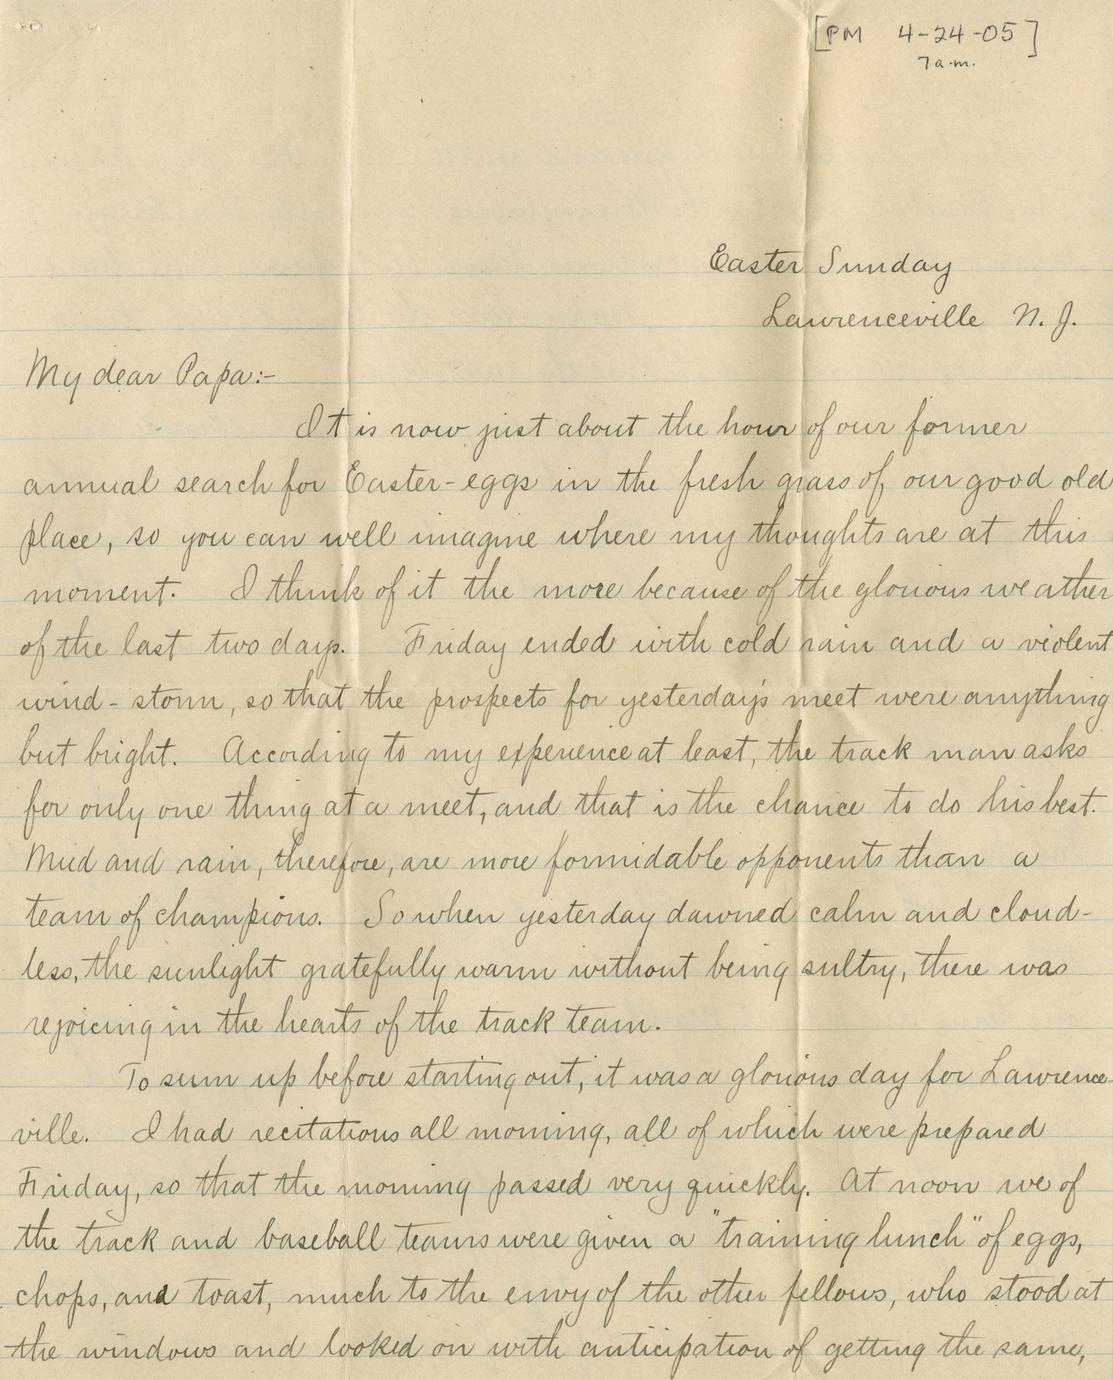 [PM 4-24-05]
7 a.m.
Easter Sunday
Lawrenceville N. J.
My dear Papa:-
It is now just about the hour of our former
annual search for Easter-eggs in the fresh grass of our good old
place, so you can well imagine where my thoughts are at this
moment. I think of it the more because of the glorious weather
of the last two days. Friday ended with cold rain and a violent
wind-storm, so that the prospects for yesterday's meet were anything
but bright. According to my experience at least, the track man asks
for only one thing at a meet, and that is the chance to do his best.
Mud and rain, therefore, are more formidable opponents than a
team of champions. So when yesterday dawned calm and cloud-
less, the sunlight gratefully warm without being sultry, there was
rejoicing in the hearts of the track team.
To sum up before starting out, it was a glorious day for Lawrence-
ville. I had recitations all morning, all of which were prepared
Friday, so that the morning passed very quickly. At noon we of
the track and baseball teams were given a "training lunch" of eggs,
chops, and toast, much to the envy of the other fellows, who stood at
the windows and looked on with anticipation of getting the same,